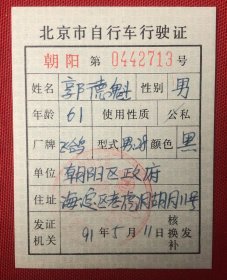 北京市自行车行驶证
朝阳 第 0442713 号
姓名 郭德魁 性别 男
年龄 61 使用性质 公私
厂牌 飞鸽 型式 男28 颜色 黑
单位 朝阳区政府
住址 海淀区老虎洞胡同11号
发证机关 91年5月11日 核换发补